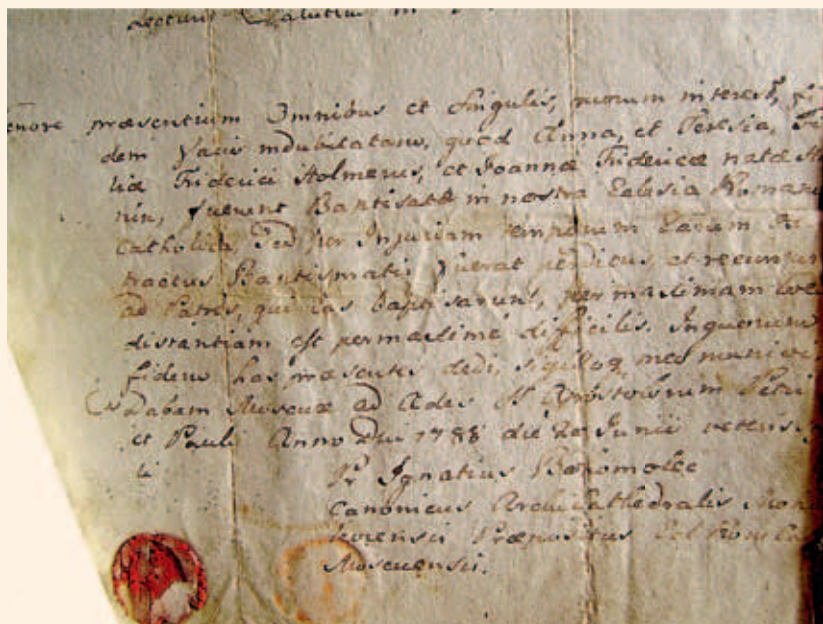 Lecturis Salutem in
Tenore præsentium Omnibus et Singulis, quorum interest, fi
dem facio indubitatam, quod Anna, et Teresia, Fi
liæ Friderici Holmerus, et Joannæ Fridericæ natæ
nin, fuerunt Baptisatæ in nostra Eclesia Romano
Catholica, sed per Injuriam temporum Earum
tractus Baptismatis fuerat perditus, et recursus
ad Patres, qui eas baptisarunt, per maximam
distantiam est permaximè difficilis. In quorum
fidem has præsentes dedi, sigiloq meo munivi.
Dabam Moscuæ ad Ædes St Apostolorum Petri
et Pauli Anno Dni 1788 die 20 Junii veteris
li
Ignatius
Canonicus Archicathedralis
Præpositus Rom
Moscuensis.